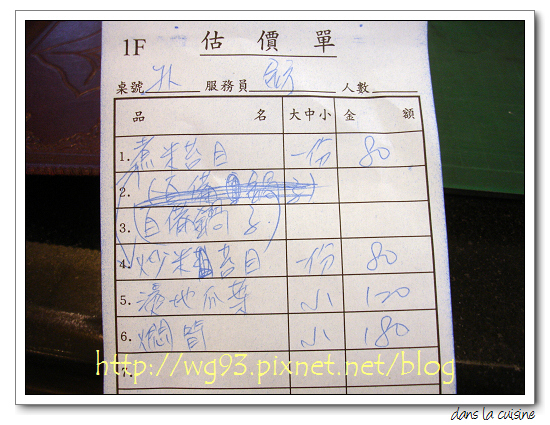 1F 估價單
桌號 外 服務員 人數
品名 大中小 金額
1. 煮米苔目 一份 80
2.
3. (自備鍋子)
4. 炒米苔目 一份 80
5. 燙地瓜葉 小 120
6. 燜筍 小 180
7.
http://wg93.pixnet.net/blog
dans la cuisine